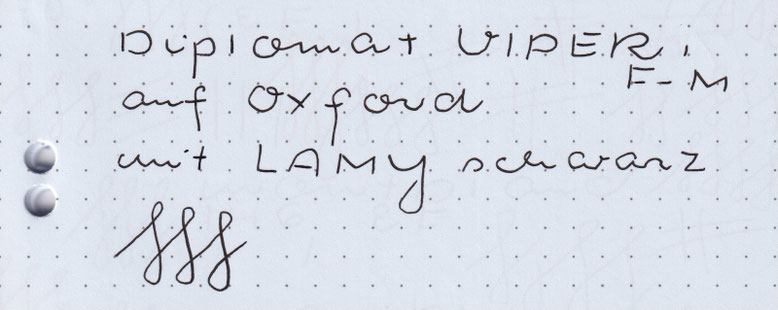 Diplomat VIPER,
F-M
auf Oxford
mit LAMY schwarz